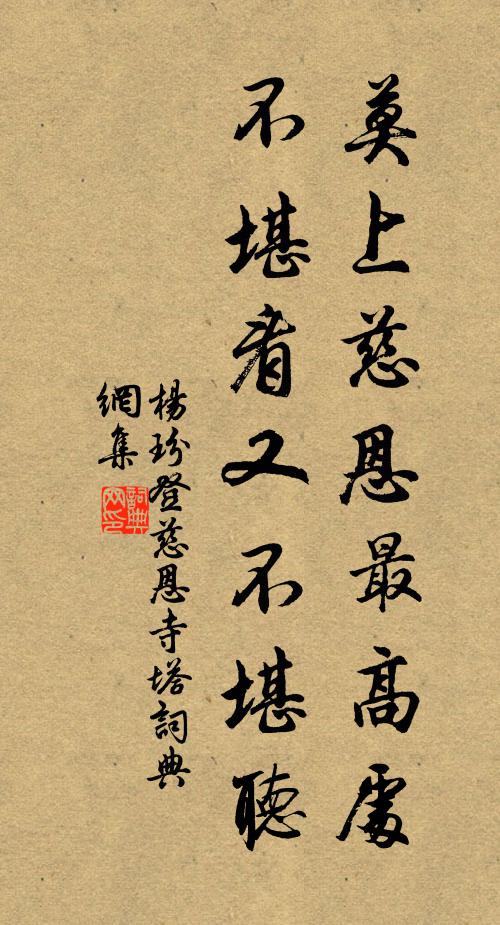 莫上慈恩最高處
不堪看又不堪聽
楊玢登慈恩寺塔詞典
網集
詞典
网印